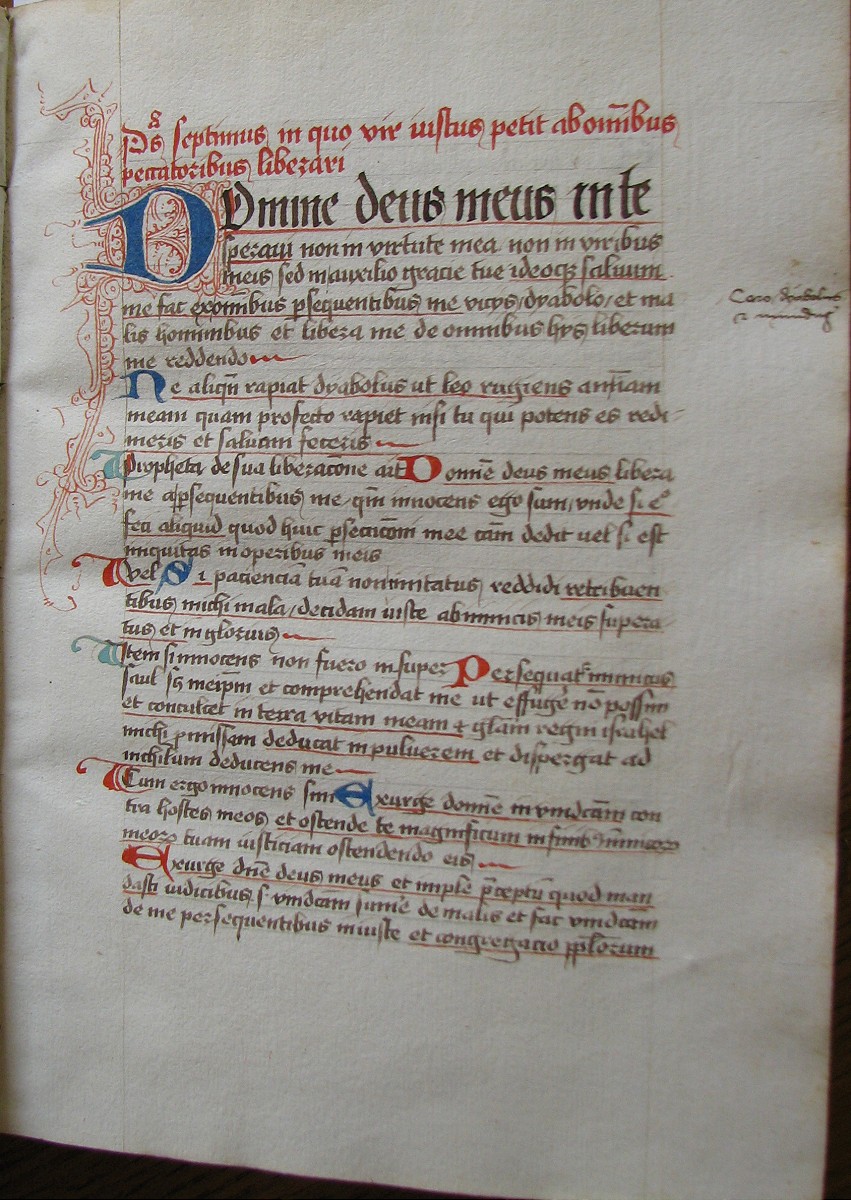 Ps septimus in quo vir iustus petit ab om̅ibus
peccatoribus liberari
Domine deus meus in te
speraui non in virtute mea non in viribus
meis sed in auxilio gracie tue ideoq; saluum
me fac ex om̅ibus ꝑsequentibus me vicijs/dyabolo/et ma
lis hominibus et libera me de omnibus hijs liberum
me reddendo
Caro/dyabolus
et mundus
Ne aliqn̅ rapiat dyabolus ut leo rugiens an̅iam
meam quam profecto rapiet nisi tu qui potens es redi-
meris et saluam feceris
Propheta de sua liberac̅one ait Domin̅e deus meus libera
me a ꝑsequentibus me qm̅ innocens ego sum/vnde si eo
feci aliquid quod huic ꝑsecuc̅oni mee ca̅m dedit uel si est
iniquitas in operibus meis
Vel Si pacienciā tuā non imitatus reddidi retribuen
tibus michi mala/decidam iuste ab inimicis meis supera
tus et inglorius
Item si innocens non fuero insuper Persequat᷑ inimicus
saul sc̅z meip̅m et comprehendat me ut effugē no̅ possim
et conculcet in terra vitam meam et gl̅am regni israhel
michi ꝓmissam deducat in puluerem et dispergat ad
nichilum deducens me
Cum ergo innocens sim Exurge domin̅e in vindc̅am con
tra hostes meos et ostende te magnificum in finib᷒ inimicoꝝ
meoꝝ tuam iusticiam ostendendo eis
Exurge dn̅e deus meus et imple p̅ceptū quod man
dasti iudicibus s. vindc̅am sumē de malis et fac vindc̅am
de me persequentibus iniuste et congregacio pp̅lorum